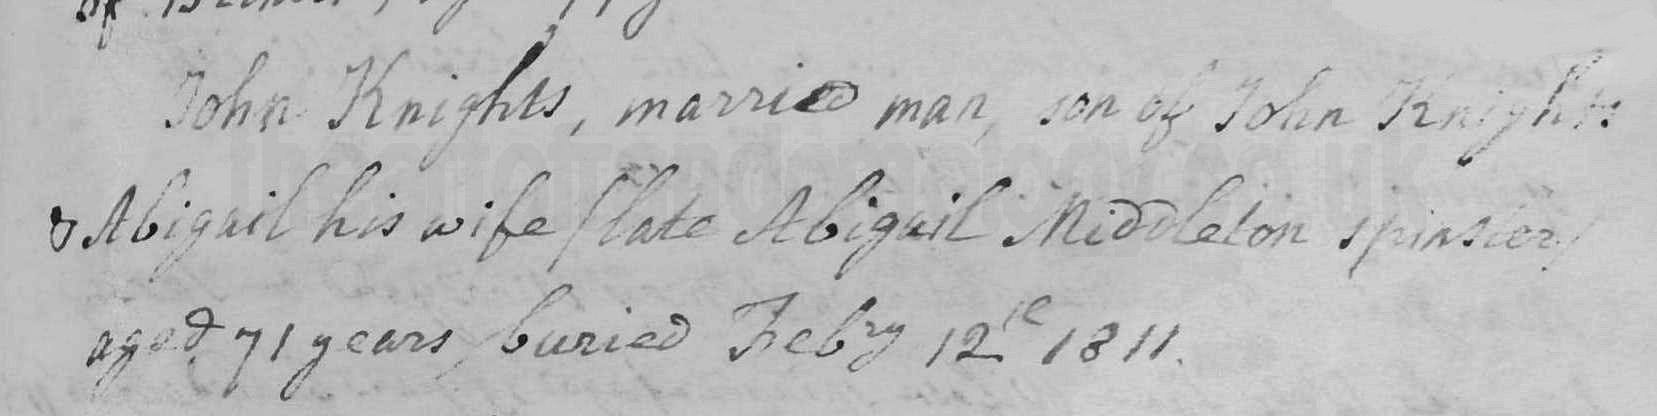 of
John Knights, married man, son of John Knights
& Abigail his wife /late Abigail Middleton spinster/
aged 71 years, buried Febry 12th 1811.